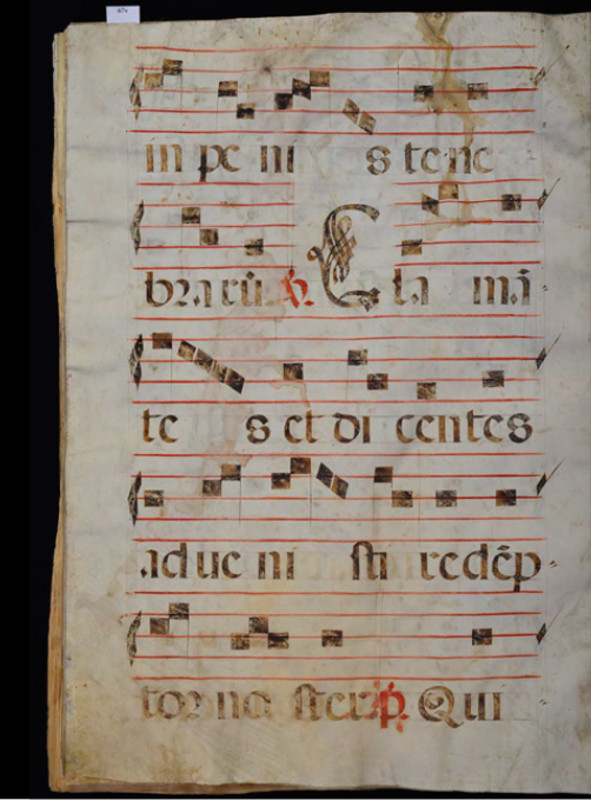 67v
in pe ni s te ne
braruȝ ℣. Cla mā
te s et di centes
ad ue ni sti redēp
tor no ster. p̄. Qui